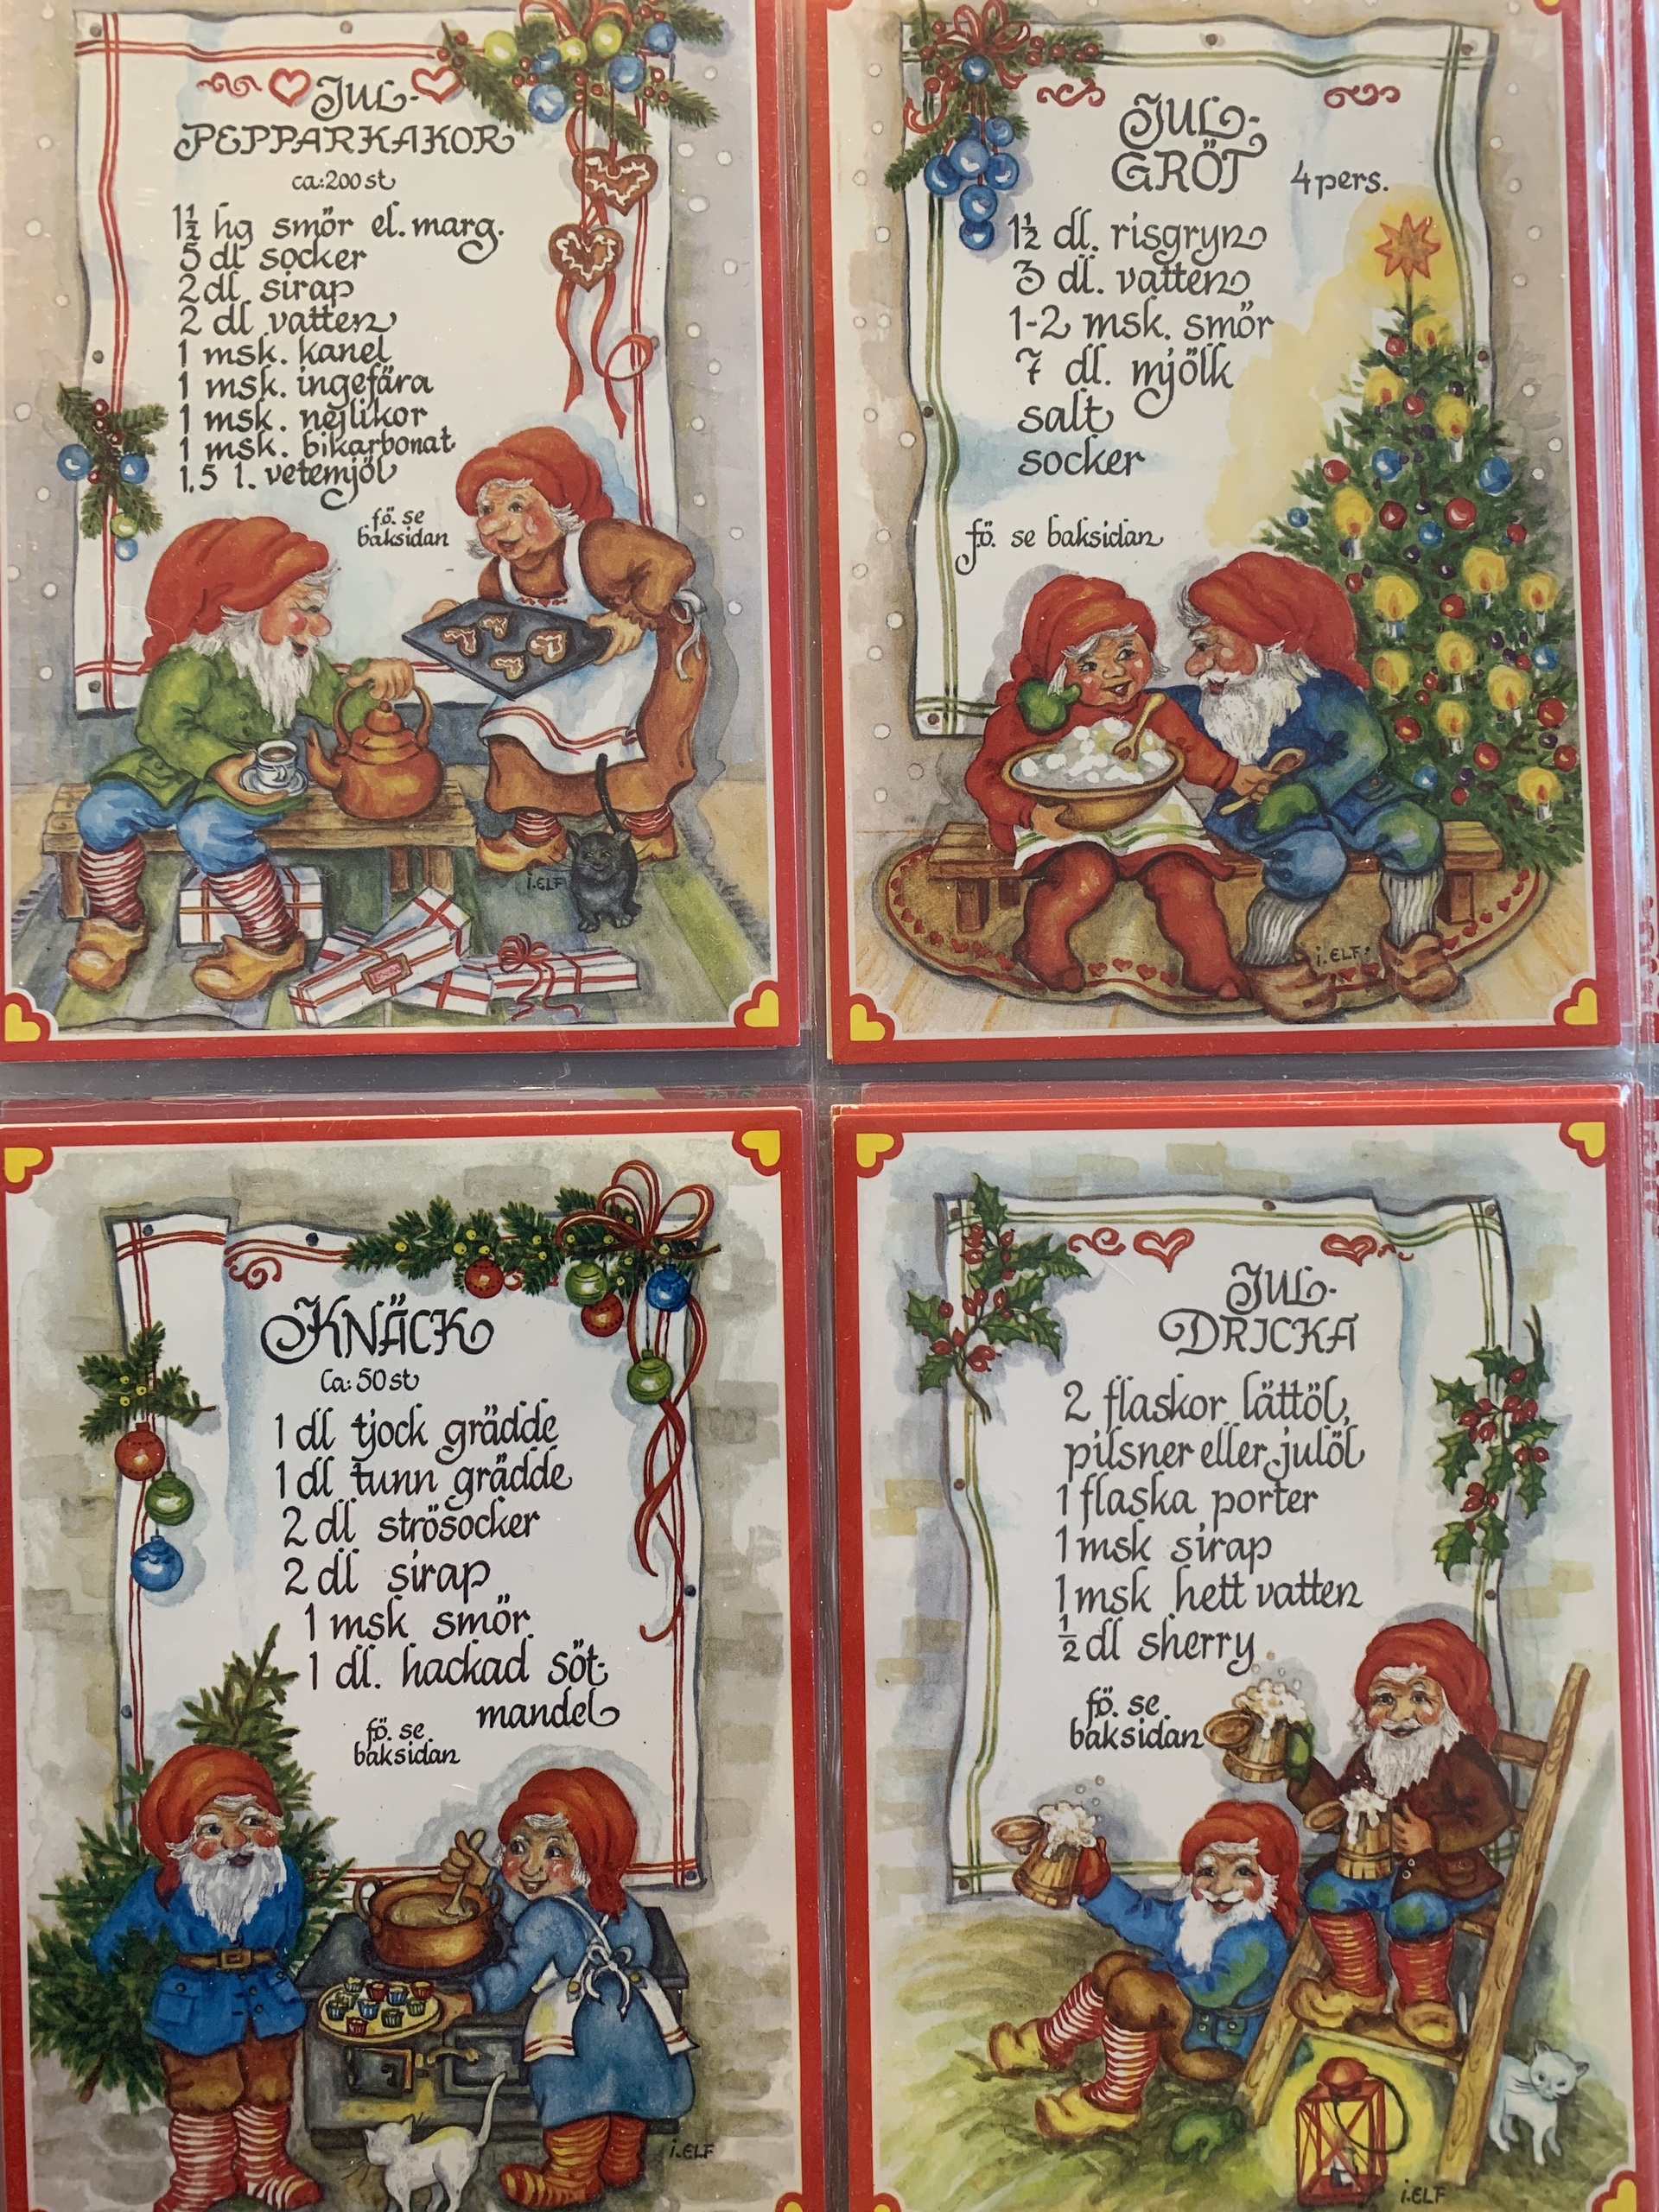 JUL-
PEPPARKAKOR
ca:200 st
1½ hg smör el. marg.
5 dl socker
2 dl sirap
2 dl vatten
1 msk. kanel
1 msk. ingefära
1 msk. nejlikor
1 msk. bikarbonat
1,5 l. vetemjöl
fö. se
baksidan
i.ELF
JUL-
GRÖT 4 pers.
1½ dl. risgryn
3 dl. vatten
1-2 msk. smör
7 dl. mjölk
salt
socker
fö. se baksidan
i.ELF.
KNÄCK
Ca: 50 st
1 dl tjock grädde
1 dl tunn grädde
2 dl strösocker
2 dl sirap
1 msk smör.
1 dl. hackad söt-
mandel
fö. se
baksidan
i.ELF
JUL-
DRICKA
2 flaskor lättöl,
pilsner eller julöl
1 flaska porter
1 msk sirap
1 msk hett vatten
½ dl sherry
fö. se
baksidan
i.ELF